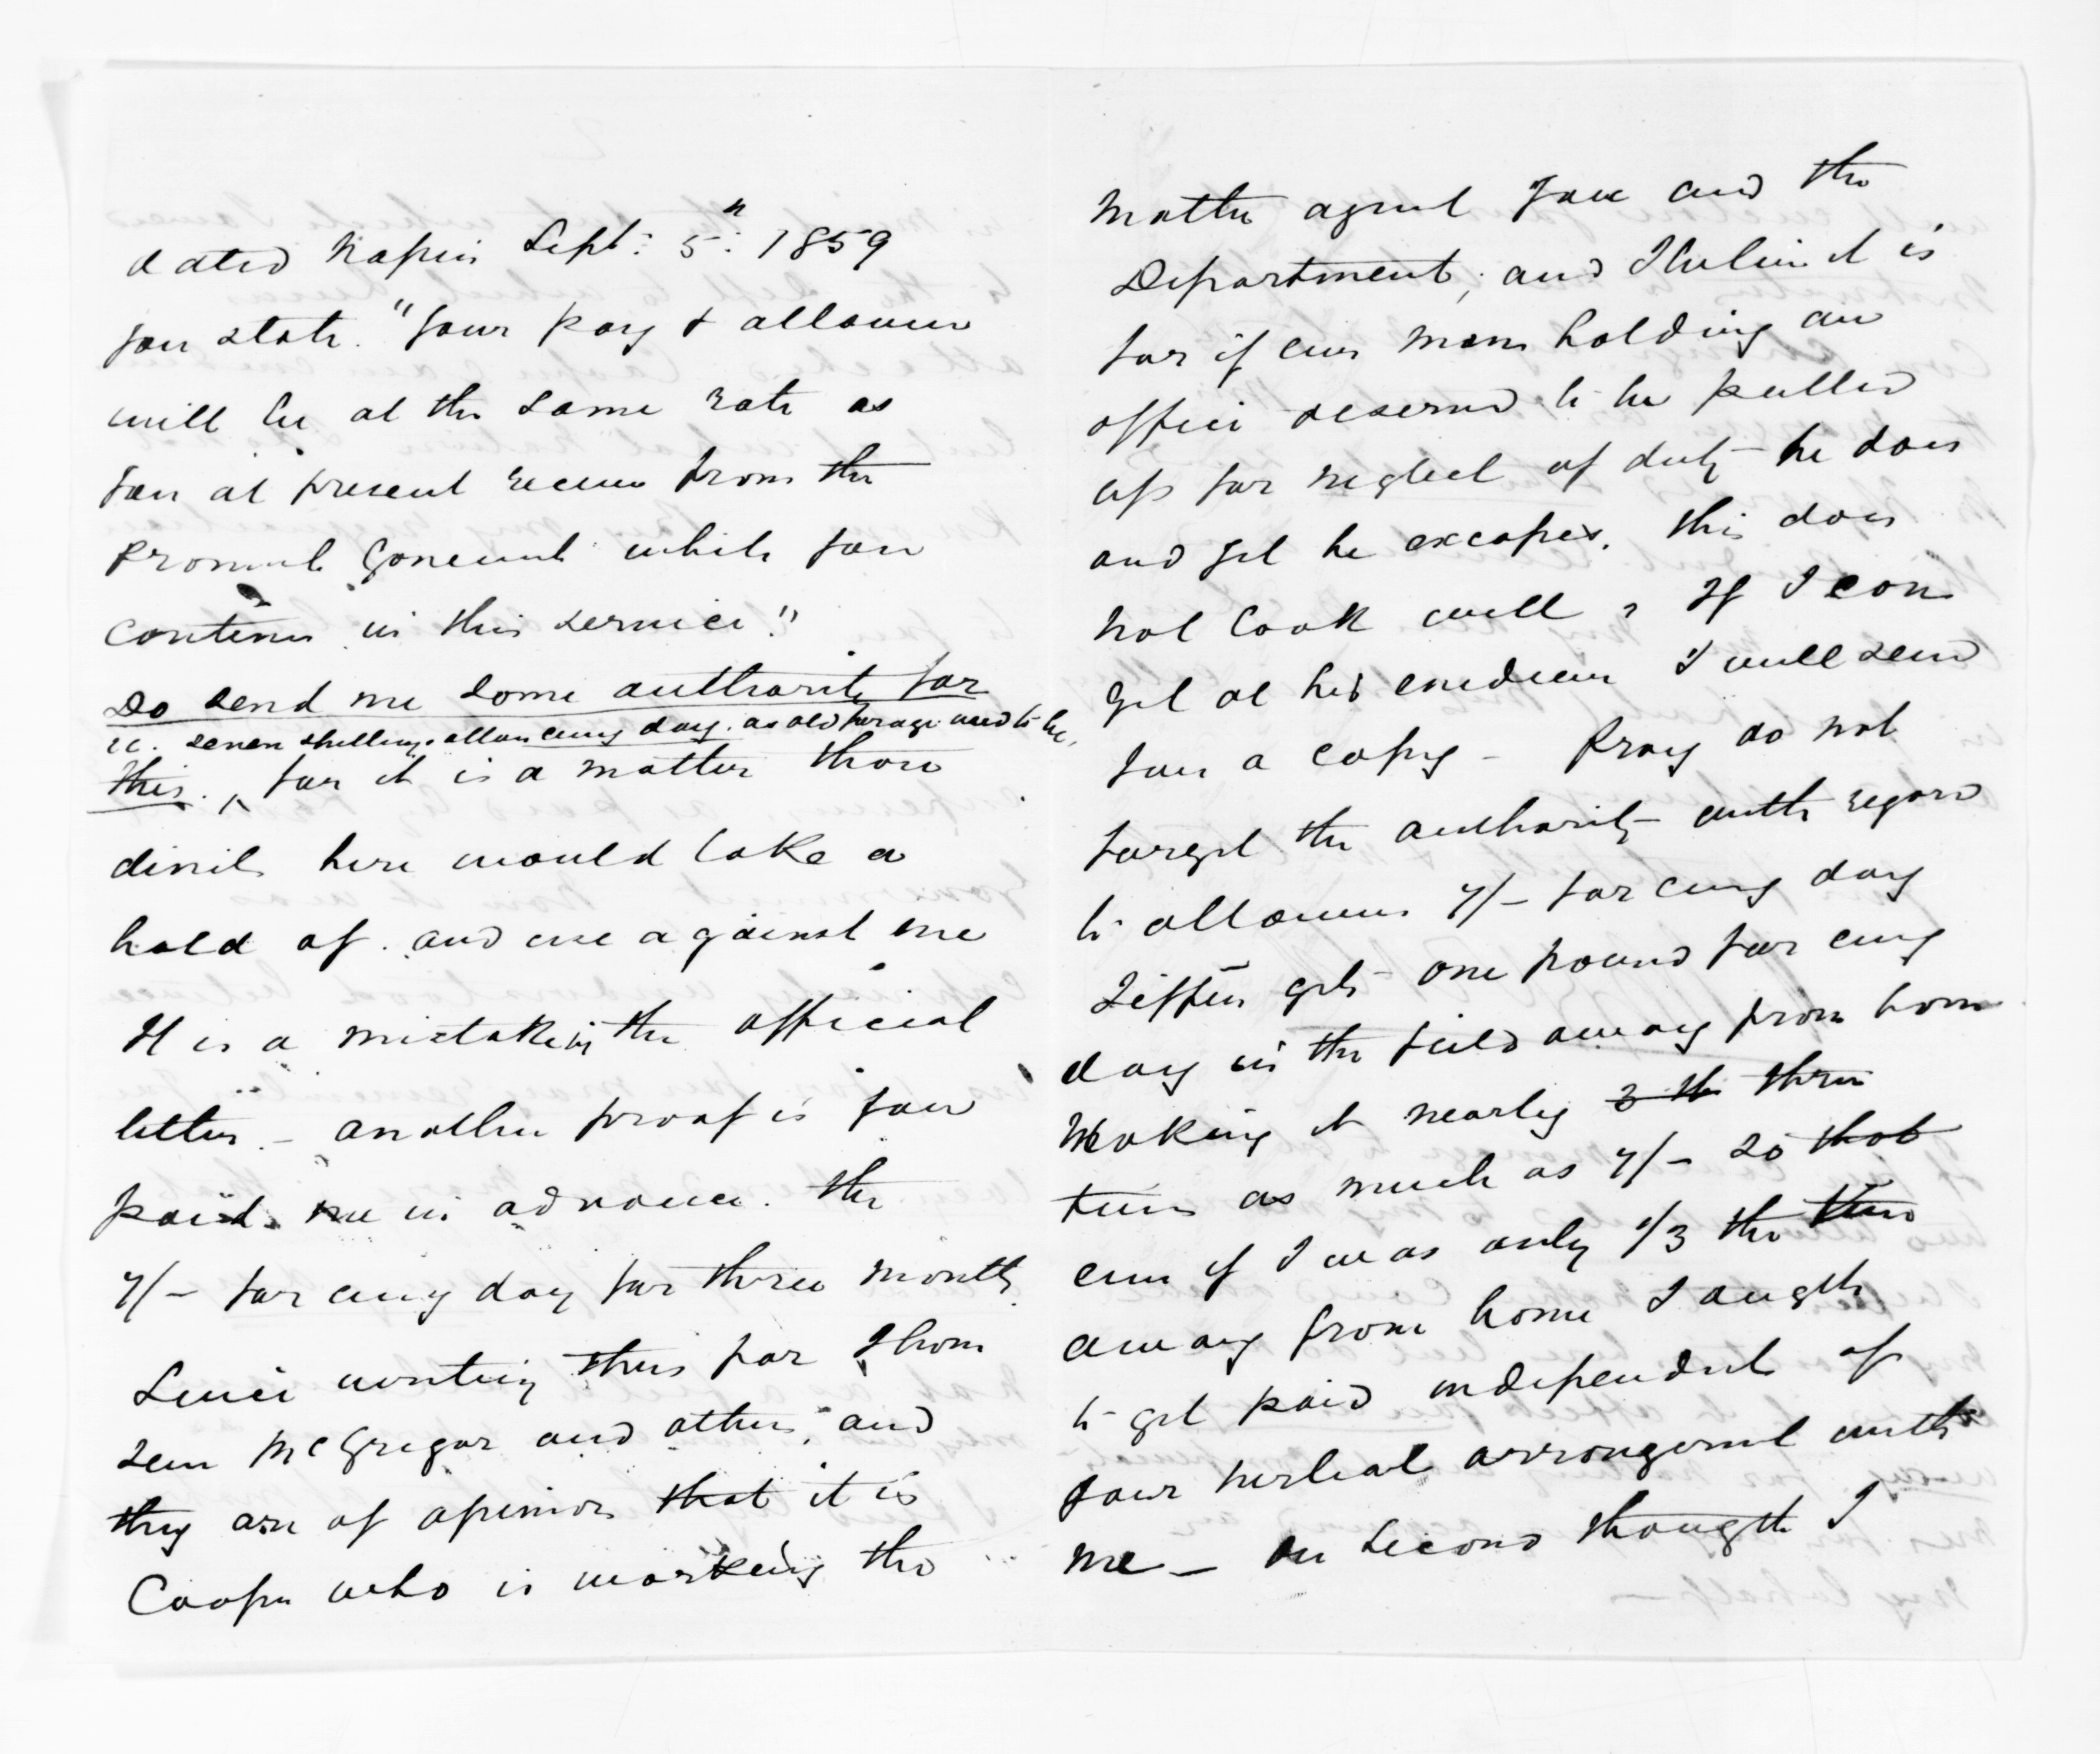 dated Napier Sept: 5th: 1859
you state. "your pay & allowance
will be at the same rate as
you at present receive from the
Provincial Government while you
continue in this service."
Do send me some authority for
i.e. seven shillings allowance every day. as old forage used to be,
this. ^ for it is a matter those
devils here would take a
hold of. and use against me
It is a mistake in the official
letter. - another proof is you
paid me in advance. the
7/- for every day for three months.
Since writing this far I have
seen McGregor and others, and
they are of opinion that it is
Cooper who is working the
matter against you and the
Department, and I believe it is
for if ever man holding an
office deserved to be pulled
up for neglect of duty - he does
and yet he excapes. this does
not look well, If I can
get at his evidence I will send
you a copy - Pray do not
forget the authority with regard
to allowance 7/- for every day
gets one pound for every
day in the field away from home
Making it nearly 3 th three
times as much as 7/- so that
even if I was only 1/3 the time
away from home I ought
to get paid independent of
your verbal arrangement with
me - On second thought I